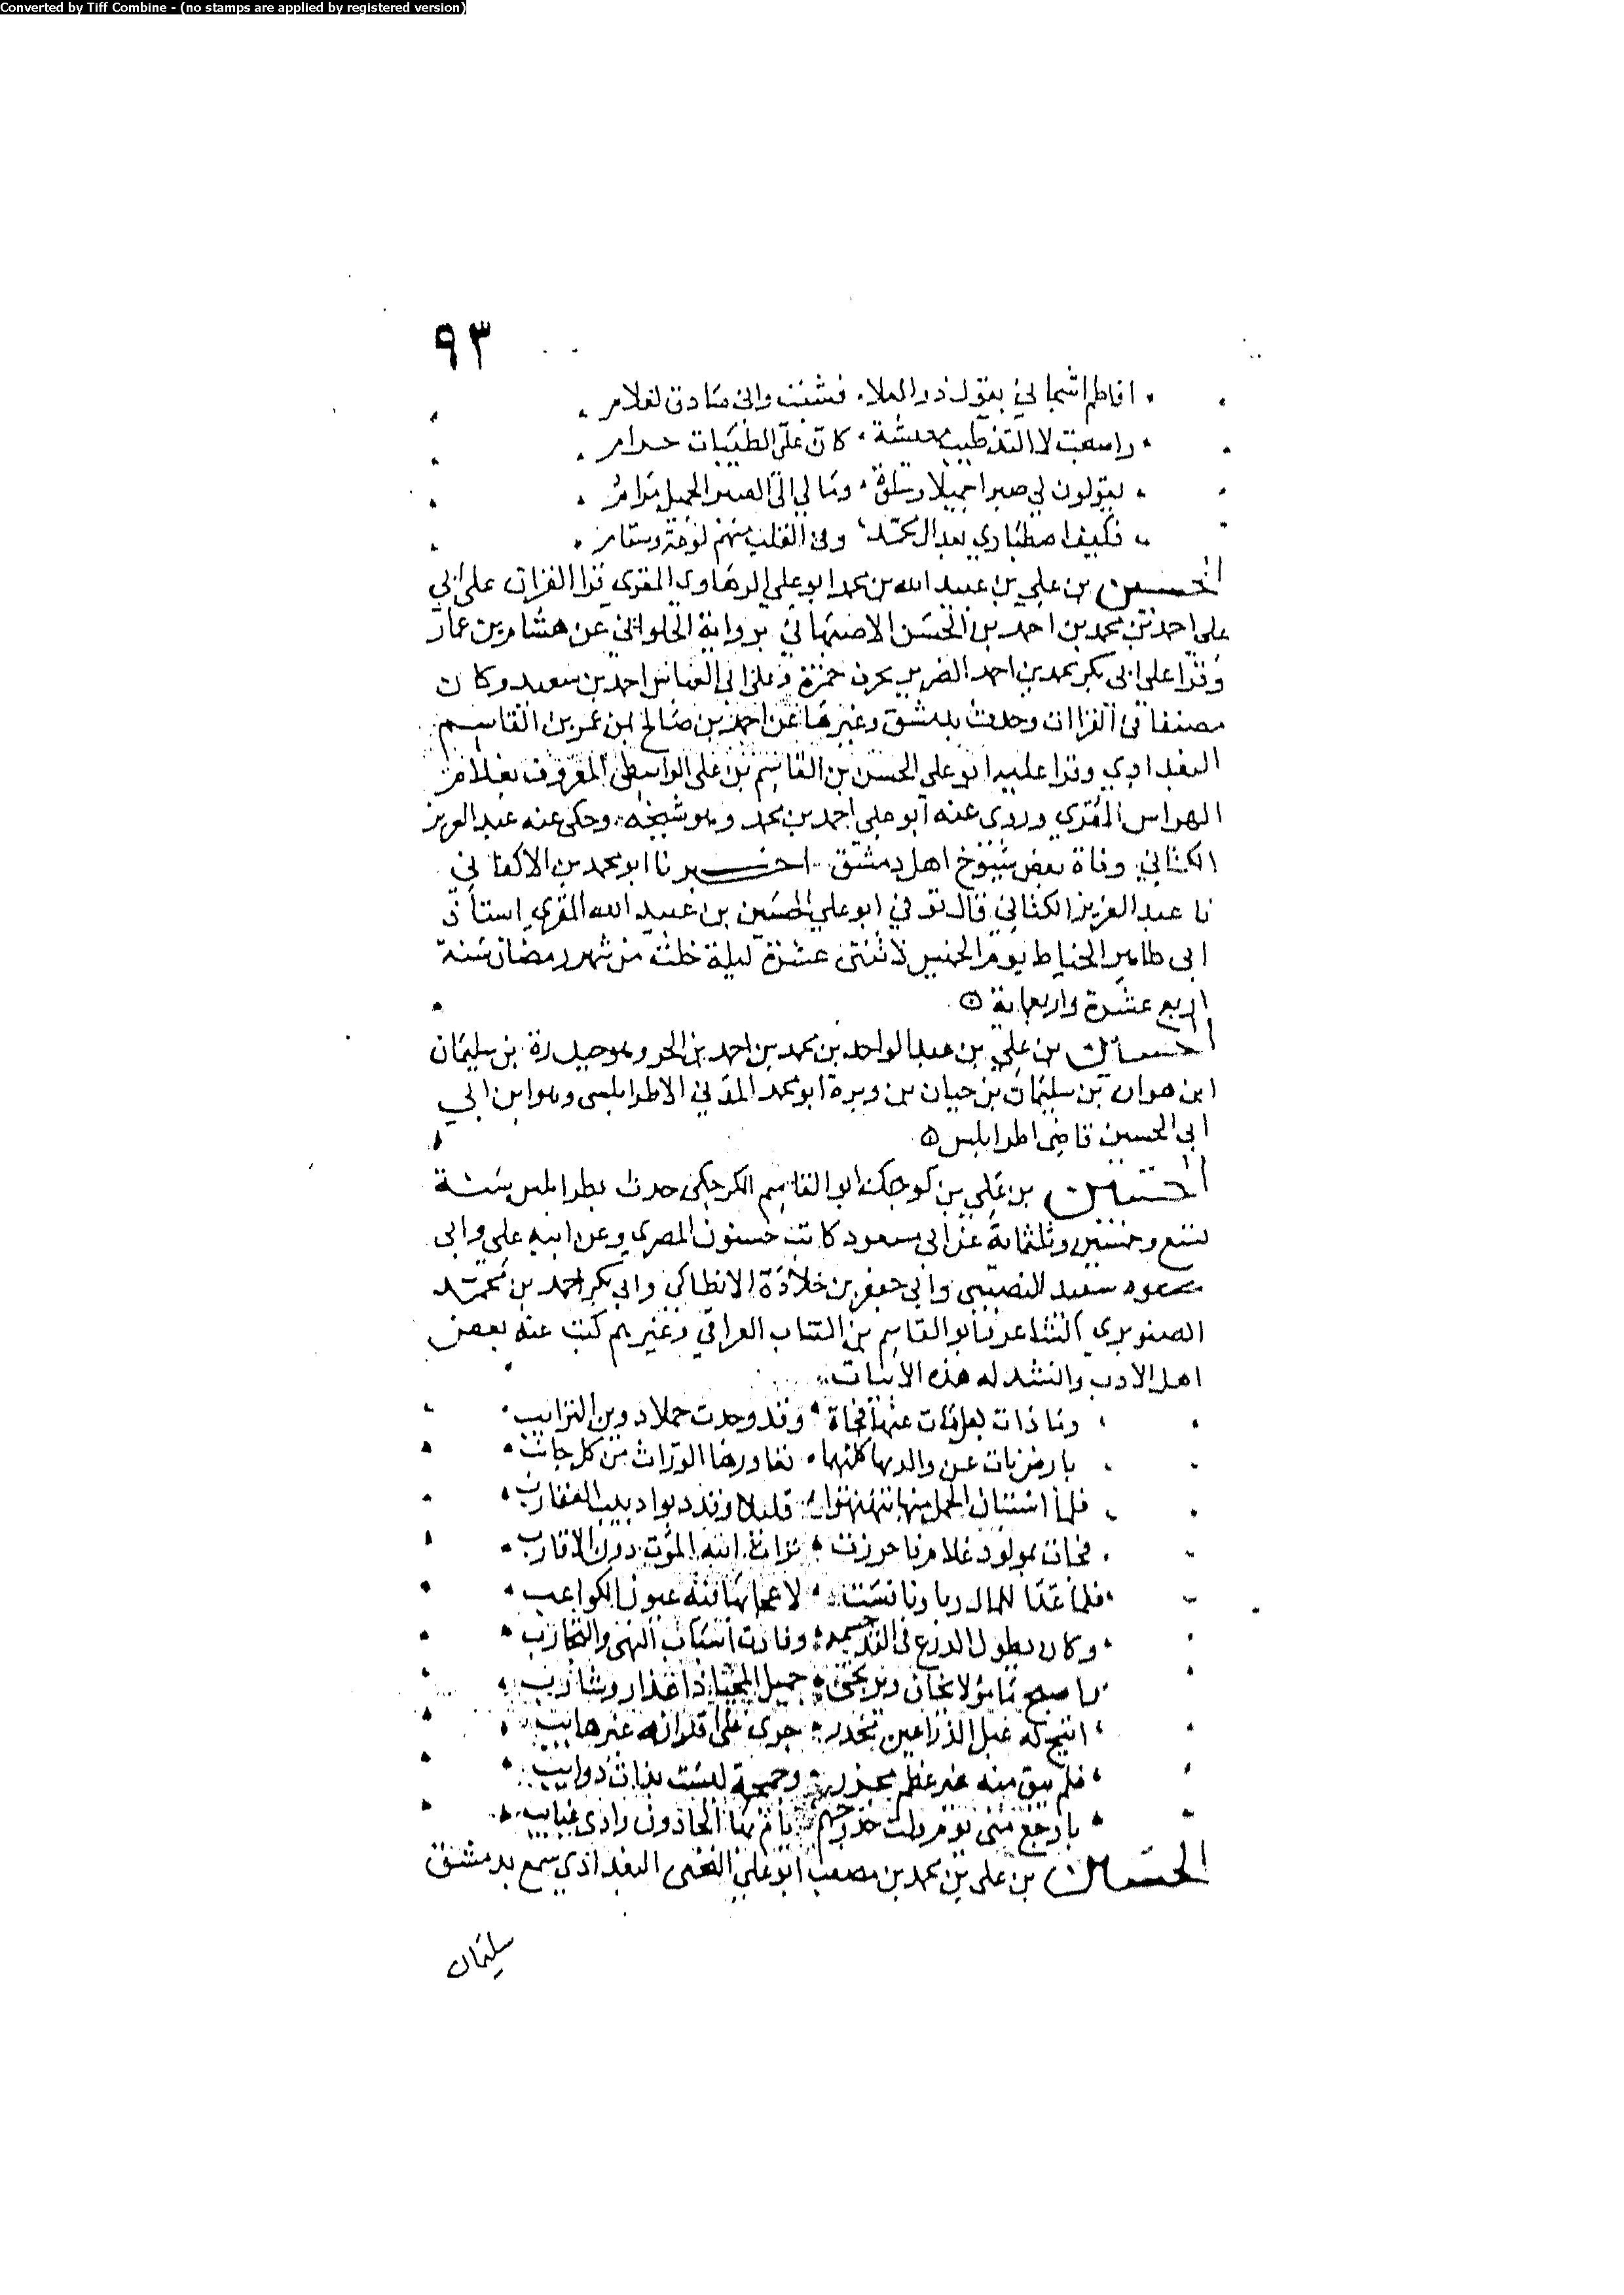 Converted by Tiff Combine - (no stamps are applied by registered version)
٩٣
افاطم اشجاني بقول ذو العلا فشبت واني صادق لغلام
واصبحت لا التذ طيب معيشة كان علي الطيبات حرام
يقولون لي صبرا جميلا وسلوة ومالي الى الصبر الجميل مرام
فكيف اصطباري بعد ال محمد وفي القلب منهم لوعة وسقام
الحسين بن علي بن عبيد الله بن محمد ابو علي الرهاوي المقري قرا القران على ابي
علي احمد بن محمد بن احمد بن الحسن الاصبهاني برواية الحلواني عن هشام بن عمار
وقرا على ابي بكر محمد بن احمد الضرير بحرف حمزة وعلى ابي العباس احمد بن سعيد وكان
مصنفا في القراات وحدث بدمشق وغيرها عن احمد بن صالح بن عمر بن القاسم
البغدادي وقرا عليه ابو علي الحسن بن القاسم بن علي الواسطي المعروف بغلام
الهراس المقري وروى عنه ابو علي احمد بن محمد وهو شيخه وحكى عنه عبد العزيز
الكتاني وفاة بعض شيوخ اهل دمشق اخبرنا ابو محمد بن الاكفاني
نا عبد العزيز الكتاني قال توفي ابو علي الحسين بن عبيد الله المقري استاذ
ابي طاهر الحناط يوم الخميس لاثنتى عشرة ليلة خلت من شهر رمضان سنة
اربع عشرة واربعماية
الحسين بن علي بن عبد الواحد بن محمد بن احمد بن الحر وهو حيدرة بن سليمان
ابن هوان بن سليمان بن حيان بن وبرة ابو محمد المدني الاطرابلسي وهو ابن ابي
ابي الحسين قاضي اطرابلس
الحسين بن علي بن كوجك ابو القاسم الكوجكي حدث بطرابلس سنة
تسع وخمسين وثلثماية عن ابي مسعود كاتب حسنون المصري وعن ابيه علي وابي
مسعود سعيد النصيبي وابي جعفر بن خلادة الانطاكي وابي بكر احمد بن محمد
الصنوبري الشاعر وابو القاسم بن المنتاب العراقي وغيرهم كتب عنه بعض
اهل الادب وانشد له هذه الابيات
وما ذات بعل مات عنها فجاة وقد وجدت حملا دوين الترايب
بارض نات عن والديها كليهما تعاورها الوراث من كل جانب
فلما استبان الحمل منها تنهنهوا قليلا وقد دبوا دبيب العقارب
فجات بمولود غلام فاحرزت تراث ابيه الميت دون الاقارب
فلما غدا للمال ربا ونافست لاعجابها فيه عيون الكواعب
وكان يطول الدرع في القد جسمه وقارب اسباب النهى والتجارب
واصبح مامولا يخاف ويرتجى جميل المحيا ذا عذار وشارب
اتيح له عبل الذراعين مخدر جرى على اقرانه غير هايب
فلم يبق منه غير عظم مجزر وجمجمة ليست بذات ذوايب
باوجع مني يوم ولت حدوجهم يام بها الحادون وادي غباغب
الحسين بن علي بن محمد بن مصعب ابو علي النخعي البغدادي سمع بدمشق
سليمان